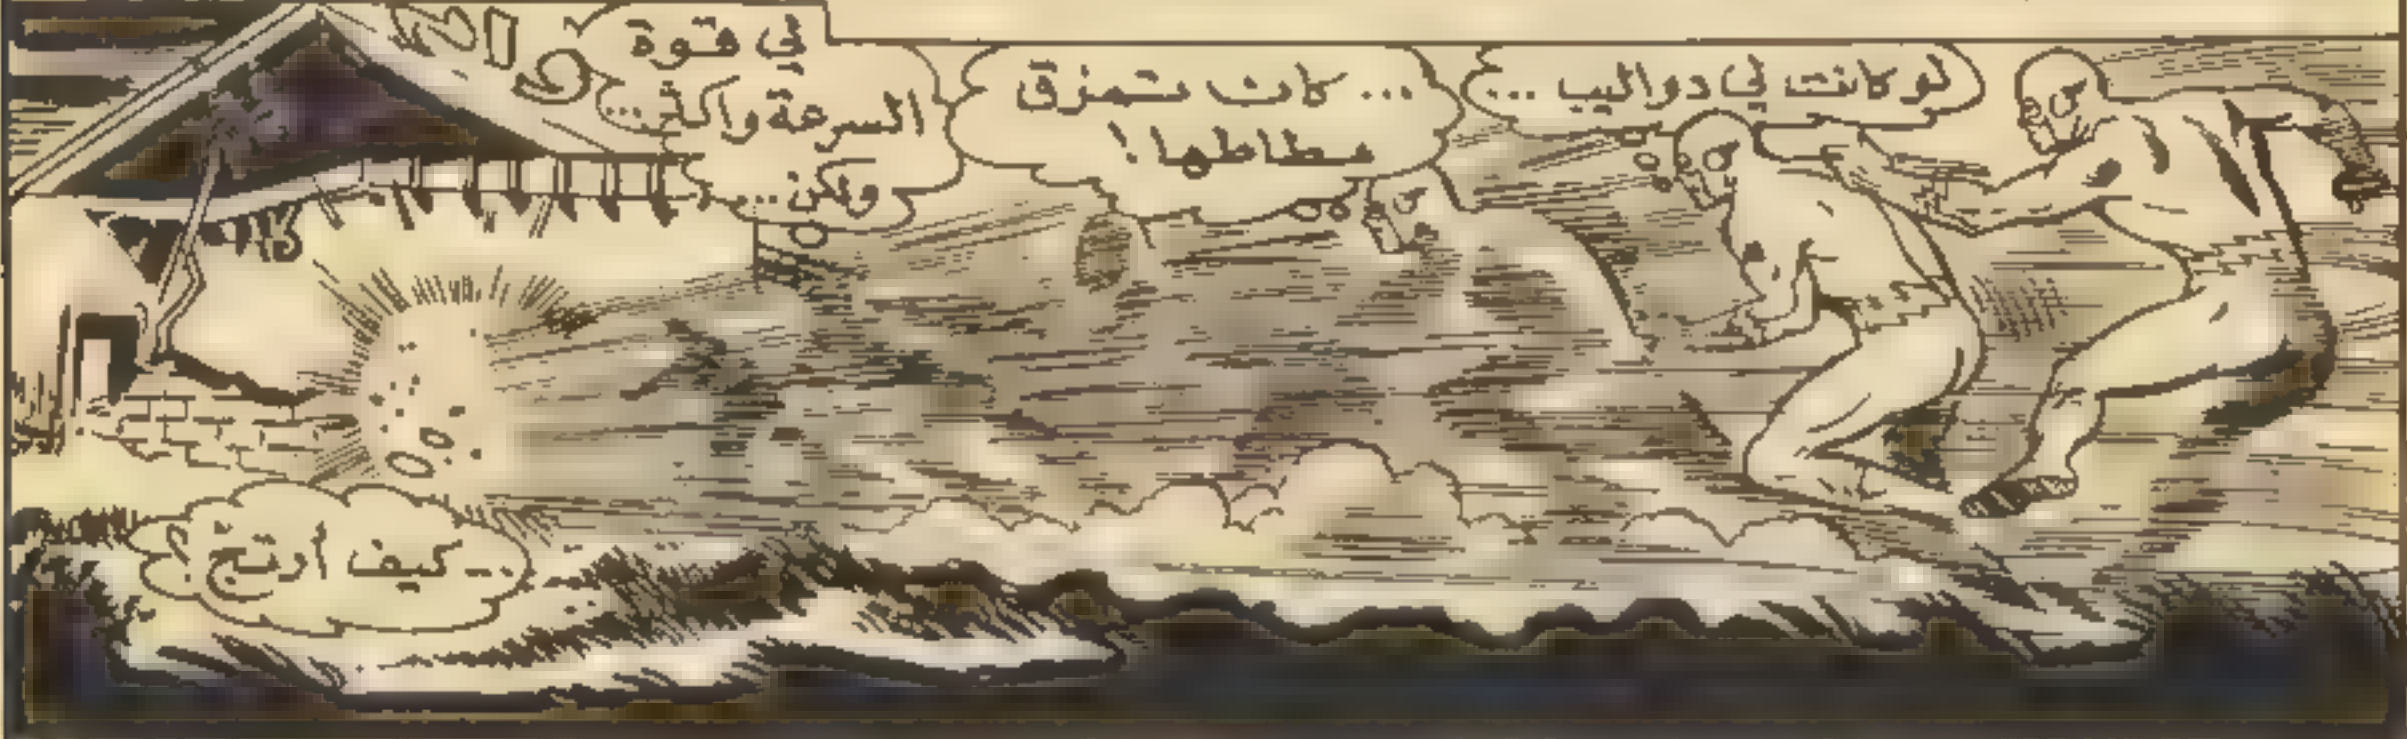 لو كانت لي دواليب ...
... كان تمزق
مطاطها !
لي قوة
السرعة واكثر ...
ولكن ...
... كيف أرتج ؟